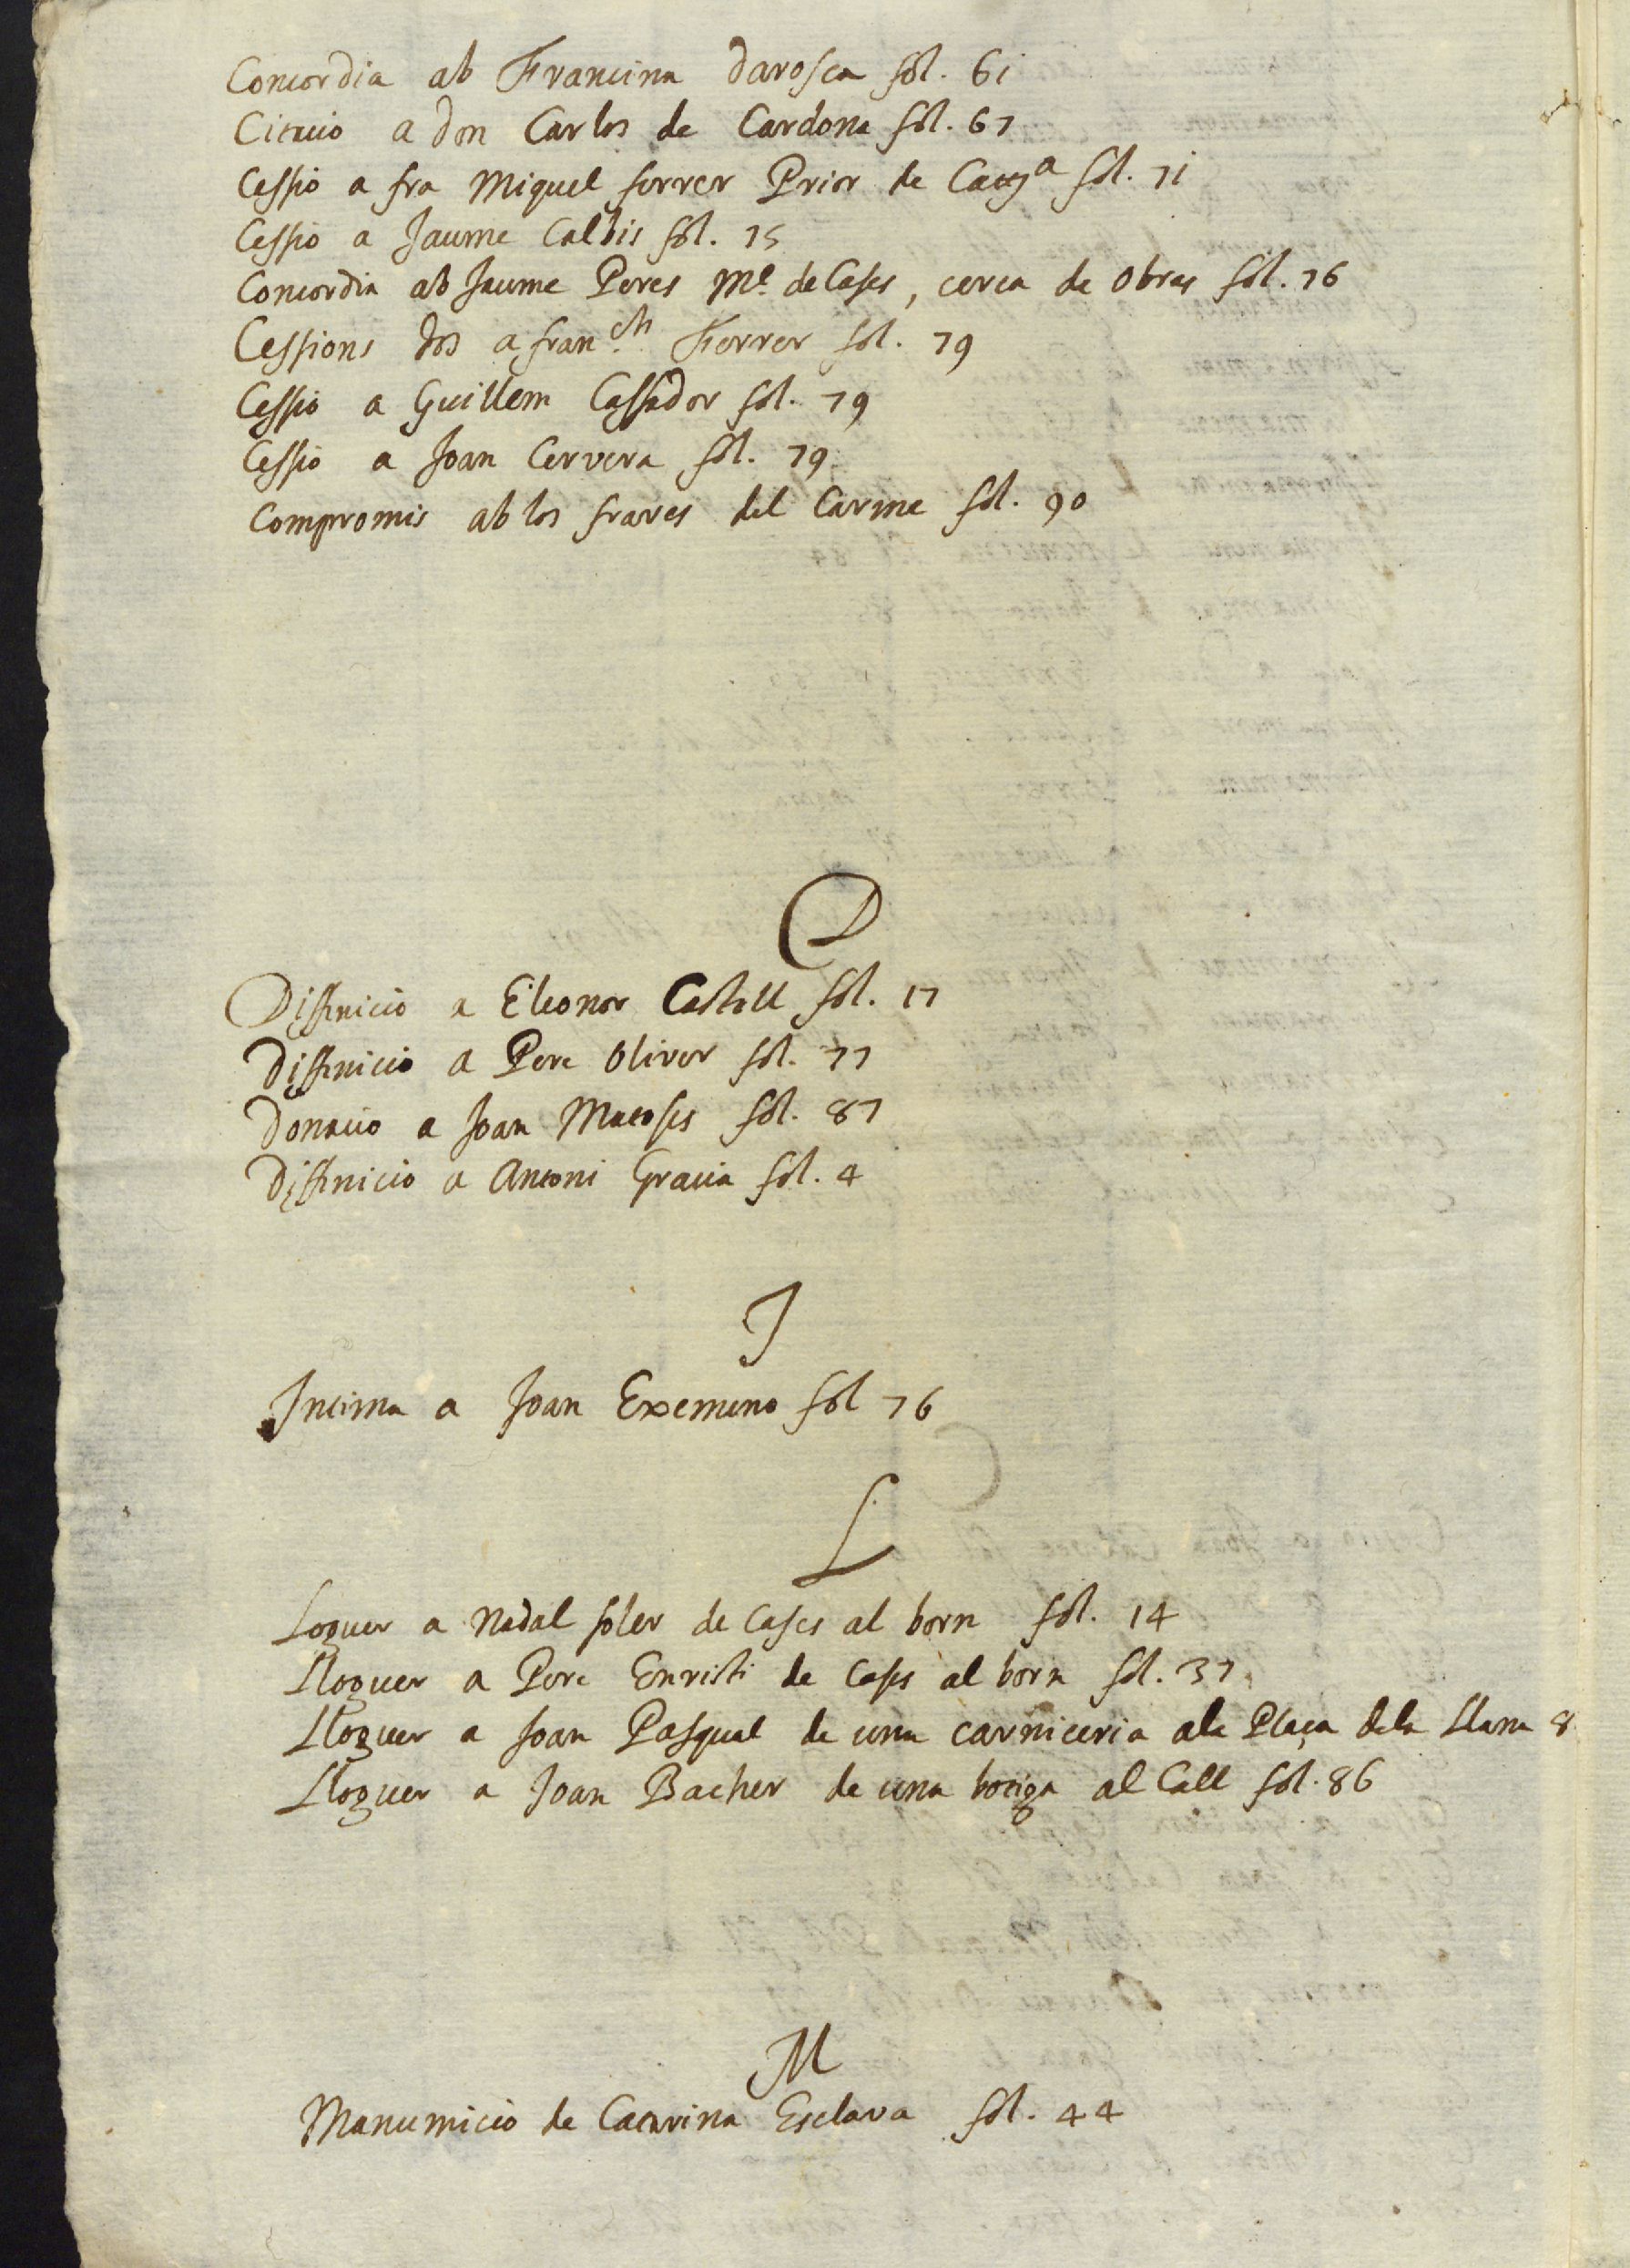 Concordia ab Francina darosca fol. 61
Citacio a don Carlos de Cardona fol. 67
Cessio a fra Miquel ferrer Prior de Cata fol. 71
Cessio a Jaume Calbis fol. 75
Concordia ab Jaume Peres Me. de Cases, cerca de obres fol. 76
Cessions dos a franch. Ferrer fol. 79
Cessio a Guillem Cassador fol. 79
Cessio a Joan Cervera fol. 79
Compromis ab los frares del Carme fol. 90
D
Diffinicio a Eleonor Castell fol. 17
Diffinicio a Pere Oliver fol. 77
Donacio a Joan Matoses fol. 87
Diffinicio a Antoni Gracia fol. 4
I
Intima a Joan Exemeno fol 76
L
Loguer a Nadal soler de Cases al born fol. 14
Lloguer a Pere Enristi de Cases al born fol. 37
Lloguer a Joan Pasqual de una carniceria ala Plaça dela Llana 8
Lloguer a Joan Bacher de una botiga al Call fol. 86
M
Manumicio de Catarina Esclava fol. 44